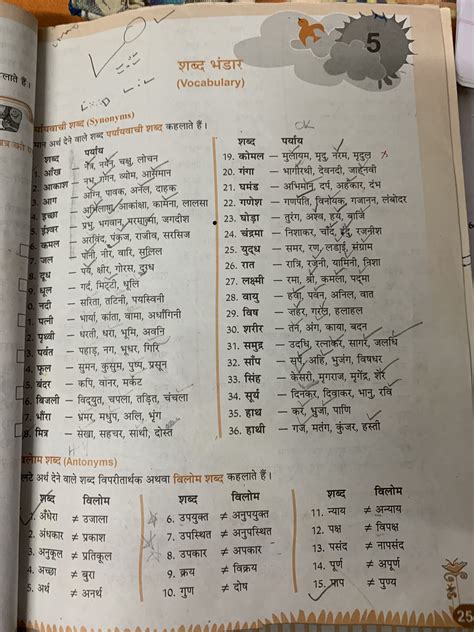 5
शब्द भंडार
(Vocabulary)
पर्यायवाची शब्द (Synonyms)
समान अर्थ देने वाले शब्द पर्यायवाची शब्द कहलाते हैं।
OK
शब्द पर्याय
1. आँख — नेत्र, नयन, चक्षु, लोचन
2. आकाश — नभ, गगन, व्योम, आसमान
3. आग — अग्नि, पावक, अनल, दाहक
4. इच्छा — अभिलाषा, आकांक्षा, कामना, लालसा
5. ईश्वर — प्रभु, भगवान, परमात्मा, जगदीश
6. कमल — अरविंद, पंकज, राजीव, सरसिज
7. जल — पानी, नीर, वारि, सलिल
8. दूध — पय, क्षीर, गोरस, दुग्ध
9. धूल — गर्द, मिट्टी, धूलि
0. नदी — सरिता, तटिनी, पयस्विनी
1. पत्नी — भार्या, कांता, वामा, अर्धांगिनी
2. पृथ्वी — धरती, धरा, भूमि, अवनि
3. पर्वत — पहाड़, नग, भूधर, गिरि
4. फूल — सुमन, कुसुम, पुष्प, प्रसून
5. बंदर — कपि, वानर, मर्कट
6. बिजली — विद्युत, चपला, तड़ित, चंचला
7. भौंरा — भ्रमर, मधुप, अलि, भृंग
8. मित्र — सखा, सहचर, साथी, दोस्त
शब्द पर्याय
19. कोमल — मुलायम, मृदु, नरम, मृदुल
20. गंगा — भागीरथी, देवनदी, जाह्नवी
21. घमंड — अभिमान, दर्प, अहंकार, दंभ
22. गणेश — गणपति, विनायक, गजानन, लंबोदर
23. घोड़ा — तुरंग, अश्व, हय, बाजि
24. चंद्रमा — निशाकर, चाँद, इंदु, रजनीश
25. युद्ध — समर, रण, लड़ाई, संग्राम
26. रात — रात्रि, रजनी, यामिनी, निशा
27. लक्ष्मी — रमा, श्री, कमला, पद्मा
28. वायु — हवा, पवन, अनिल, वात
29. विष — ज़हर, गरल, हलाहल
30. शरीर — तन, अंग, काया, बदन
31. समुद्र — उदधि, रत्नाकर, सागर, जलधि
32. साँप — सर्प, अहि, भुजंग, विषधर
33. सिंह — केसरी, मृगराज, मृगेंद्र, शेर
34. सूर्य — दिनकर, दिवाकर, भानु, रवि
35. हाथ — कर, भुजा, पाणि
36. हाथी — गज, मतंग, कुंजर, हस्ती
विलोम शब्द (Antonyms)
उलटे अर्थ देने वाले शब्द विपरीतार्थक अथवा विलोम शब्द कहलाते हैं।
शब्द विलोम
1. अँधेरा ≠ उजाला
2. अंधकार ≠ प्रकाश
3. अनुकूल ≠ प्रतिकूल
4. अच्छा ≠ बुरा
5. अर्थ ≠ अनर्थ
शब्द विलोम
6. उपयुक्त ≠ अनुपयुक्त
7. उपस्थित ≠ अनुपस्थित
8. उपकार ≠ अपकार
9. क्रय ≠ विक्रय
10. गुण ≠ दोष
शब्द विलोम
11. न्याय ≠ अन्याय
12. पक्ष ≠ विपक्ष
13. पसंद ≠ नापसंद
14. पूर्ण ≠ अपूर्ण
15. पाप ≠ पुण्य
25